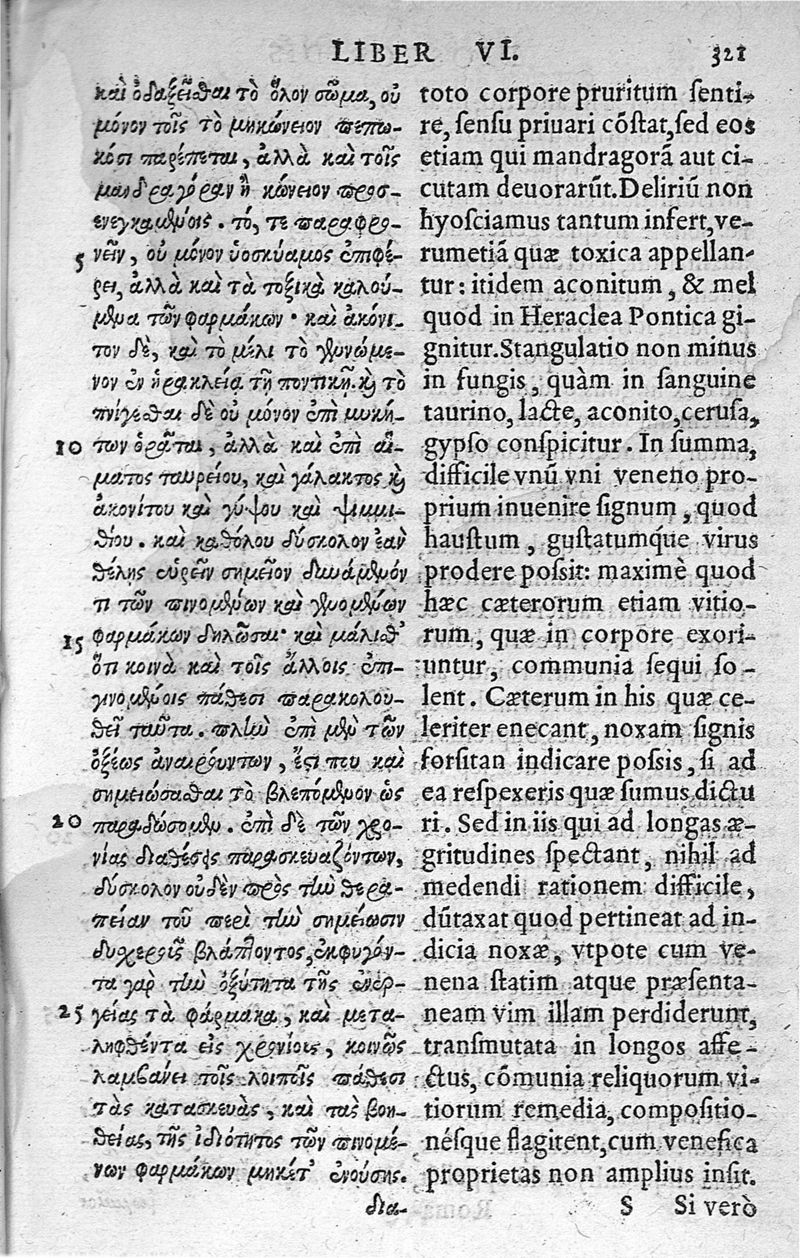 LIBER VI. 321
καὶ ὀδαξεῖσθαι τὸ ὅλον σῶμα, οὐ
μόνον τοῖς τὸ μηκώνειον πεπω-
κόσι παρέπεται, ἀλλὰ καὶ τοῖς
μανδραγόραν ἢ κώνειον προσ-
ενεγκαμένοις. τό, τε παραφρο-
5 νεῖν, οὐ μόνον ὑοσκύαμος ἐπιφέ-
ρει, ἀλλὰ καὶ τὰ τοξικὰ καλού-
μενα τῶν φαρμάκων· καὶ ἀκόνι-
τον δὲ, καὶ τὸ μέλι τὸ γεννώμε-
νον ἐν ἡρακλείᾳ τῇ ποντικῇ. καὶ τὸ
πνίγεσθαι δὲ οὐ μόνον ἐπὶ μυκή-
10 των ὁρᾶται, ἀλλὰ καὶ ἐπὶ αἵ-
ματος ταυρείου, καὶ γάλακτος καὶ
ἀκονίτου καὶ γύψου καὶ ψιμμι-
θίου. καὶ καθόλου δύσκολον ἐὰν
θέλῃς εὑρεῖν σημεῖον δυνάμενόν
τι τῶν πινομένων καὶ γευομένων
15 φαρμάκων δηλῶσαι· καὶ μάλισθ'
ὅτι κοινὰ καὶ τοῖς ἄλλοις ἐπι-
γινομένοις πάθεσι παρακολου-
θεῖ ταῦτα. πλὴν ἐπὶ μὲν τῶν
ὀξέως ἀναιρούντων, ἔστι που καὶ
σημειώσασθαι τὸ βλεπόμενον ὡς
20 παραδώσομεν. ἐπὶ δὲ τῶν χρο-
νίας διαθέσεις παρασκευαζόντων,
δύσκολον οὐδὲν πρὸς τὴν θερα-
πείαν τοῦ περὶ τὴν σημείωσιν
δυχεροῦς βλάπτοντος, ἐκφυγόν-
τα γὰρ τὴν ὀξύτητα τῆς ἐνερ-
25 γείας τὰ φάρμακα, καὶ μετα-
ληφθέντα εἰς χρονίους, κοινῶς
λαμβάνει τοῖς λοιποῖς πάθεσι
τὰς κατασκευὰς, καὶ τὰς βοη-
θείας, τῆς ἰδιότητος τῶν πινομέ-
νων φαρμάκων μηκέτ' ἐνούσης.
δια-
toto corpore pruritum ſenti-
re, ſenſu priuari cõſtat, ſed eos
etiam qui mandragorã aut ci-
cutam deuorarũt. Deliriũ non
hyoſciamus tantum infert, ve-
rumetiã quæ toxica appellan-
tur: itidem aconitum, & mel
quod in Heraclea Pontica gi-
gnitur. Stangulatio non minus
in fungis, quàm in ſanguine
taurino, lacte, aconito, ceruſa,
gypſo conſpicitur. In ſumma,
difficile vnũ vni veneno pro-
prium inuenire ſignum, quod
hauſtum, guſtatumq́ue virus
prodere poſsit: maximè quod
hæc cæterorum etiam vitio-
rum, quæ in corpore exori-
untur, communia ſequi ſo-
lent. Cæterum in his quæ ce-
leriter enecant, noxam ſignis
forſitan indicare poſsis, ſi ad
ea reſpexeris quæ ſumus dictu
ri. Sed in iis qui ad longas æ-
gritudines ſpectant, nihil ad
medendi rationem difficile,
dũtaxat quod pertineat ad in-
dicia noxæ, vtpote cum ve-
nena ſtatim atque præſenta-
neam vim illam perdiderunt,
tranſmutata in longos affe-
ctus, cõmunia reliquorum vi-
tiorum remedia, compoſitio-
néſque flagitent, cum venefica
proprietas non amplius inſit.
S Si verò